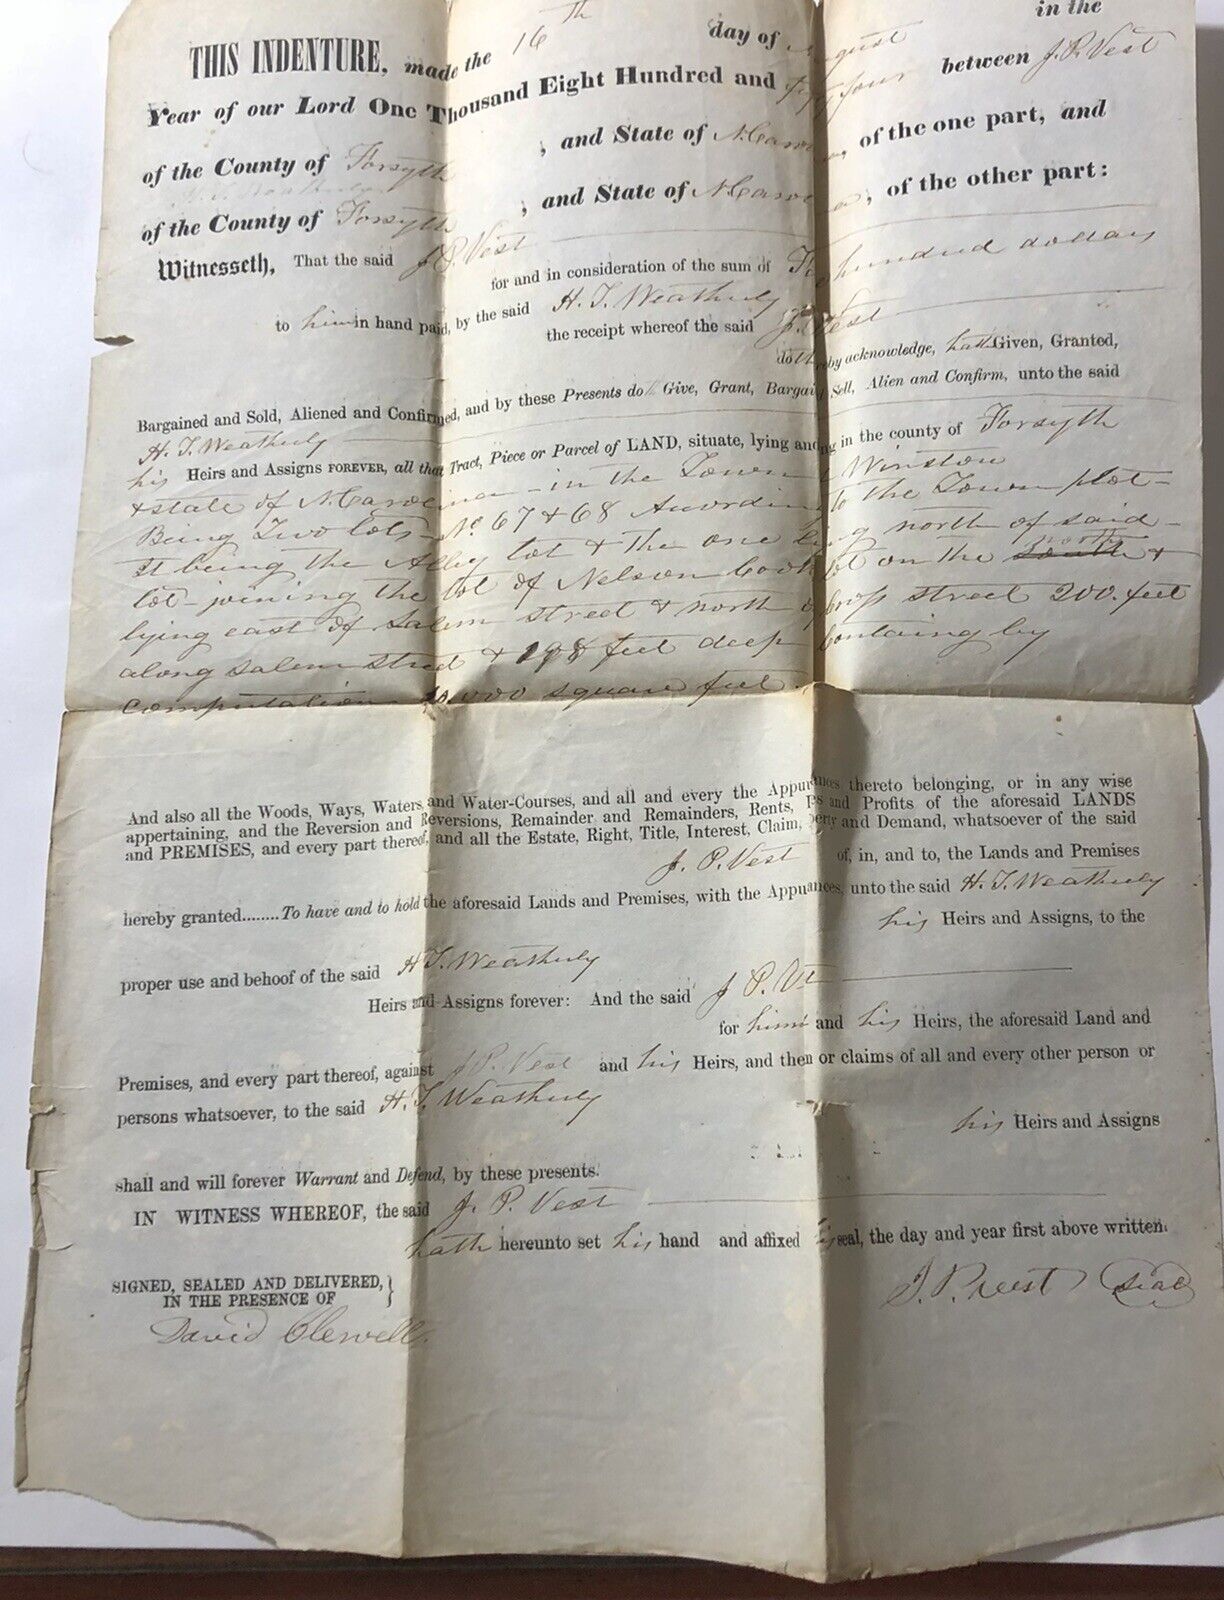 THIS INDENTURE, made the 16th day of August in the
Year of our Lord One Thousand Eight Hundred and fifty four between J. P. Vest
of the County of Forsyth , and State of N. Carolina, of the one part, and
H. T. Weatherly
of the County of Forsyth , and State of N. Carolina, of the other part:
Witnesseth, That the said J. P. Vest
for and in consideration of the sum of hundred dollars
to him in hand paid, by the said H. T. Weatherly
the receipt whereof the said J. P. Vest
doth hereby acknowledge, hath Given, Granted,
Bargained and Sold, Aliened and Confirmed, and by these Presents doth Give, Grant, Bargain, Sell, Alien and Confirm, unto the said
H. T. Weatherly
his Heirs and Assigns FOREVER, all that Tract, Piece or Parcel of LAND, situate, lying and being in the county of Forsyth
& state of N. Carolina - in the Town Winston
Being Two lots - No 67 & 68 According to the Town plot -
It being the Alley lot & the one lying north of said -
lot - joining the lot of Nelson Cook lot on the south north &
lying east of Salem street & north of Cross street 200. feet
along Salem street & 198 feet deep Containing by
computation 000 square feet
And also all the Woods, Ways, Waters and Water-Courses, and all and every the Appurtenances thereto belonging, or in any wise
appertaining, and the Reversion and Reversions, Remainder and Remainders, Rents, and Profits of the aforesaid LANDS
and PREMISES, and every part thereof, and all the Estate, Right, Title, Interest, Claim, Property and Demand, whatsoever of the said
J. P. Vest of, in, and to, the Lands and Premises
hereby granted........To have and to hold the aforesaid Lands and Premises, with the Appurtenances, unto the said H. T. Weatherly
his Heirs and Assigns, to the
proper use and behoof of the said H T. Weatherly
Heirs and Assigns forever: And the said J P. Ve
for him and his Heirs, the aforesaid Land and
Premises, and every part thereof, against J P. Vest and his Heirs, and then or claims of all and every other person or
persons whatsoever, to the said H. T. Weatherly
his Heirs and Assigns
shall and will forever Warrant and Defend, by these presents.
IN WITNESS WHEREOF, the said J. P. Vest
hath hereunto set his hand and affixed his seal, the day and year first above written.
SIGNED, SEALED AND DELIVERED, }
IN THE PRESENCE OF
J. P. Vest Seal
David Clewell.